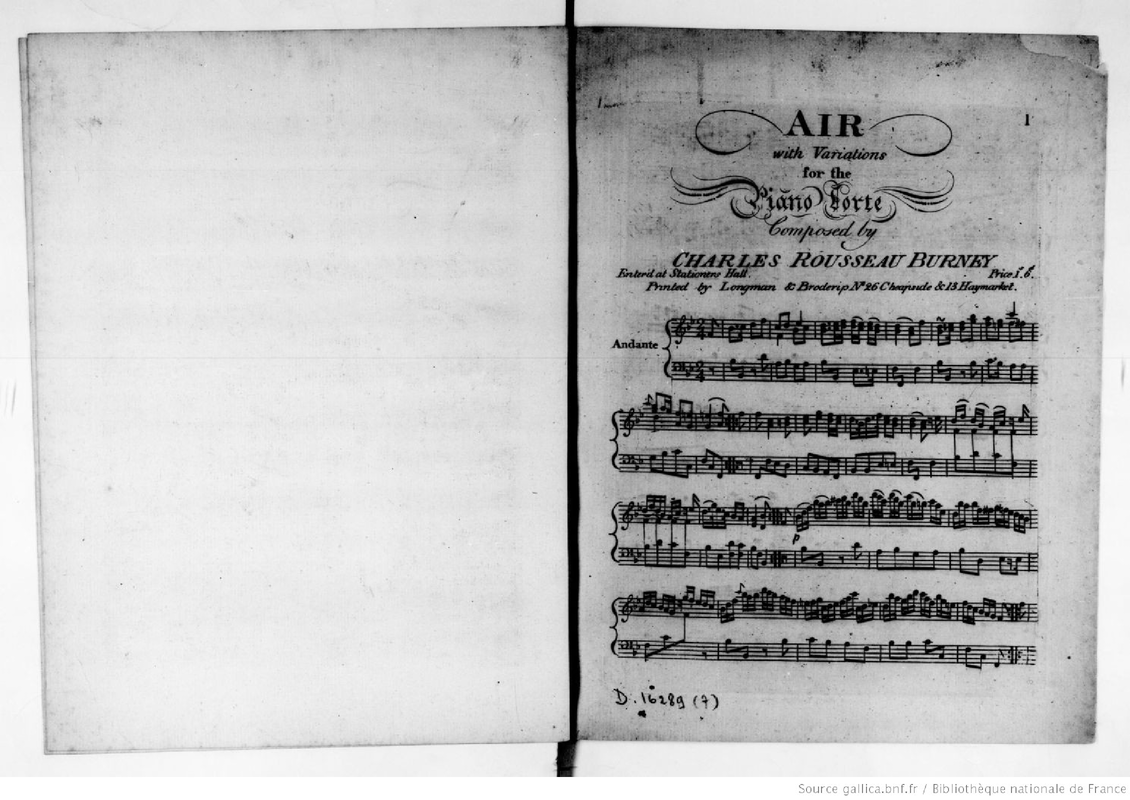 1
AIR
with Variations
for the
Piano Forte
Composed by
CHARLES ROUSSEAU BURNEY
Enter'd at Stationers Hall. Price 1s. 6d.
Printed by Longman & Broderip No. 26 Cheapside & 13 Haymarket.
Andante
p
D. 16289 (7)
Source gallica.bnf.fr / Bibliothèque nationale de France